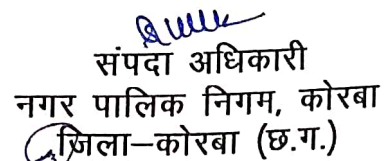 संपदा अधिकारी
नगर पालिक निगम, कोरबा
जिला–कोरबा (छ.ग.)